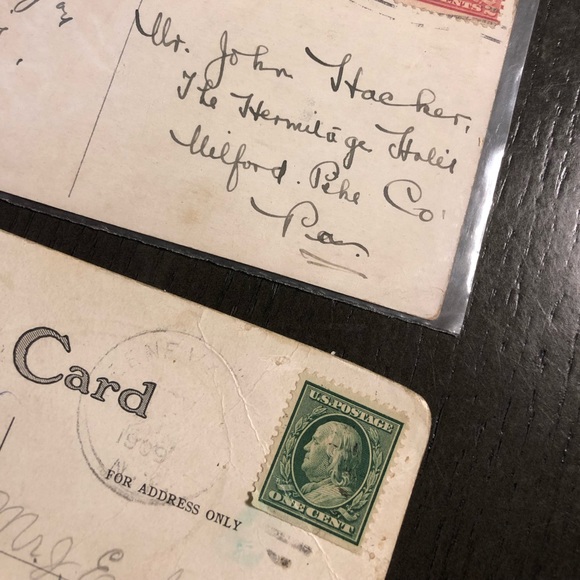 CENTS
Mr. John Hacker,
The Hermitage Hotel
Milford. Pike Co
Pa.
Card
1909
FOR ADDRESS ONLY
U.S. POSTAGE
ONE CENT
Mr. J.